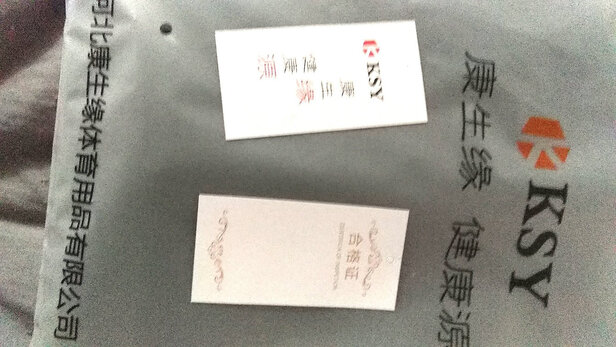 KSY
康生缘 健康源
河北康生缘体育用品有限公司
KSY
康生缘
健康源
合格证